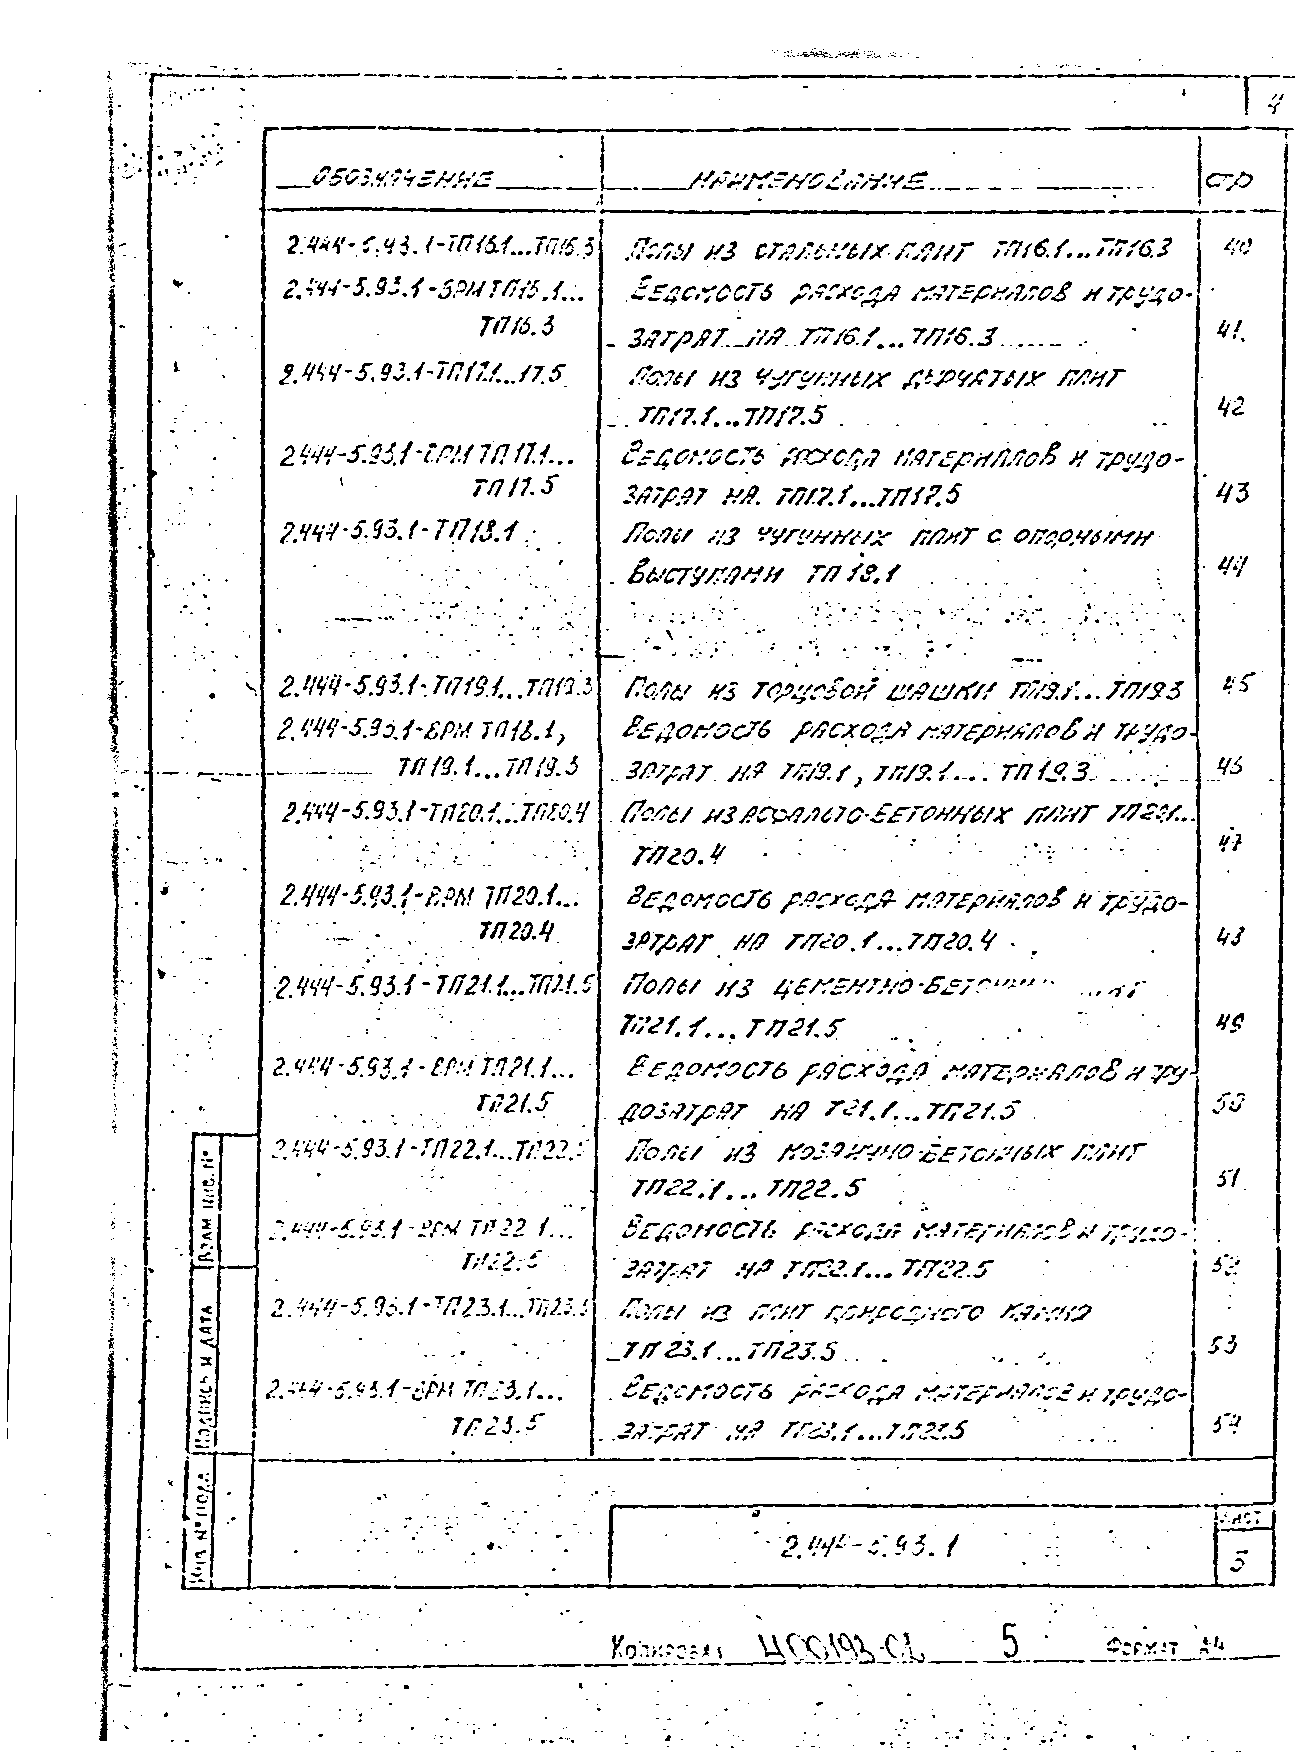 4
ОБОЗНАЧЕНИЕ НАИМЕНОВАНИЕ СТР
2.444-5.93.1-ТП16.1...ТП16.3 Полы из стальных плит ТП16.1...ТП16.3 40
2.444-5.93.1-ВРМ ТП16.1... Ведомость расхода материалов и трудо-
ТП16.3 затрат на ТП16.1...ТП16.3 41
2.444-5.93.1-ТП17.1...17.5 Полы из чугунных дырчатых плит
ТП17.1...ТП17.5 42
2.444-5.93.1-ВРМ ТП17.1... Ведомость расхода материалов и трудо-
ТП17.5 затрат на ТП17.1...ТП17.5 43
2.444-5.93.1-ТП18.1 Полы из чугунных плит с опорными
выступами ТП18.1 44
2.444-5.93.1-ТП19.1...ТП19.3 Полы из торцовой шашки ТП19.1...ТП19.3 45
2.444-5.93.1-ВРМ ТП18.1, Ведомость расхода материалов и трудо-
ТП19.1...ТП19.3 затрат на ТП19.1, ТП19.1... ТП19.3 46
2.444-5.93.1-ТП20.1...ТП20.4 Полы из асфальто-бетонных плит ТП20.1...
ТП20.4 47
2.444-5.93.1-ВРМ ТП20.1... Ведомость расхода материалов и трудо-
ТП20.4 затрат на ТП20.1...ТП20.4 48
2.444-5.93.1-ТП21.1...ТП21.5 Полы из цементно-бетонных
ТП21.1...ТП21.5 49
2.444-5.93.1-ВРМ ТП21.1... Ведомость расхода материалов и тру-
ТП21.5 дозатрат на Т21.1...ТП21.5 50
2.444-5.93.1-ТП22.1...ТП22.5 Полы из мозаично-бетонных плит
ТП22.1...ТП22.5 51
2.444-5.93.1-ВРМ ТП22.1... Ведомость расхода материалов и трудо-
ТП22.5 затрат на ТП22.1...ТП22.5 52
2.444-5.93.1-ТП23.1...ТП23.5 Полы из плит природного камня
ТП23.1...ТП23.5 53
2.444-5.93.1-ВРМ ТП23.1... Ведомость расхода материалов и трудо-
ТП23.5 затрат на ТП23.1...ТП23.5 54
Взам инв. №
Подпись и дата
Инв № подл
2.444-5.93.1
Лист
3
Копировал 5 Формат А4